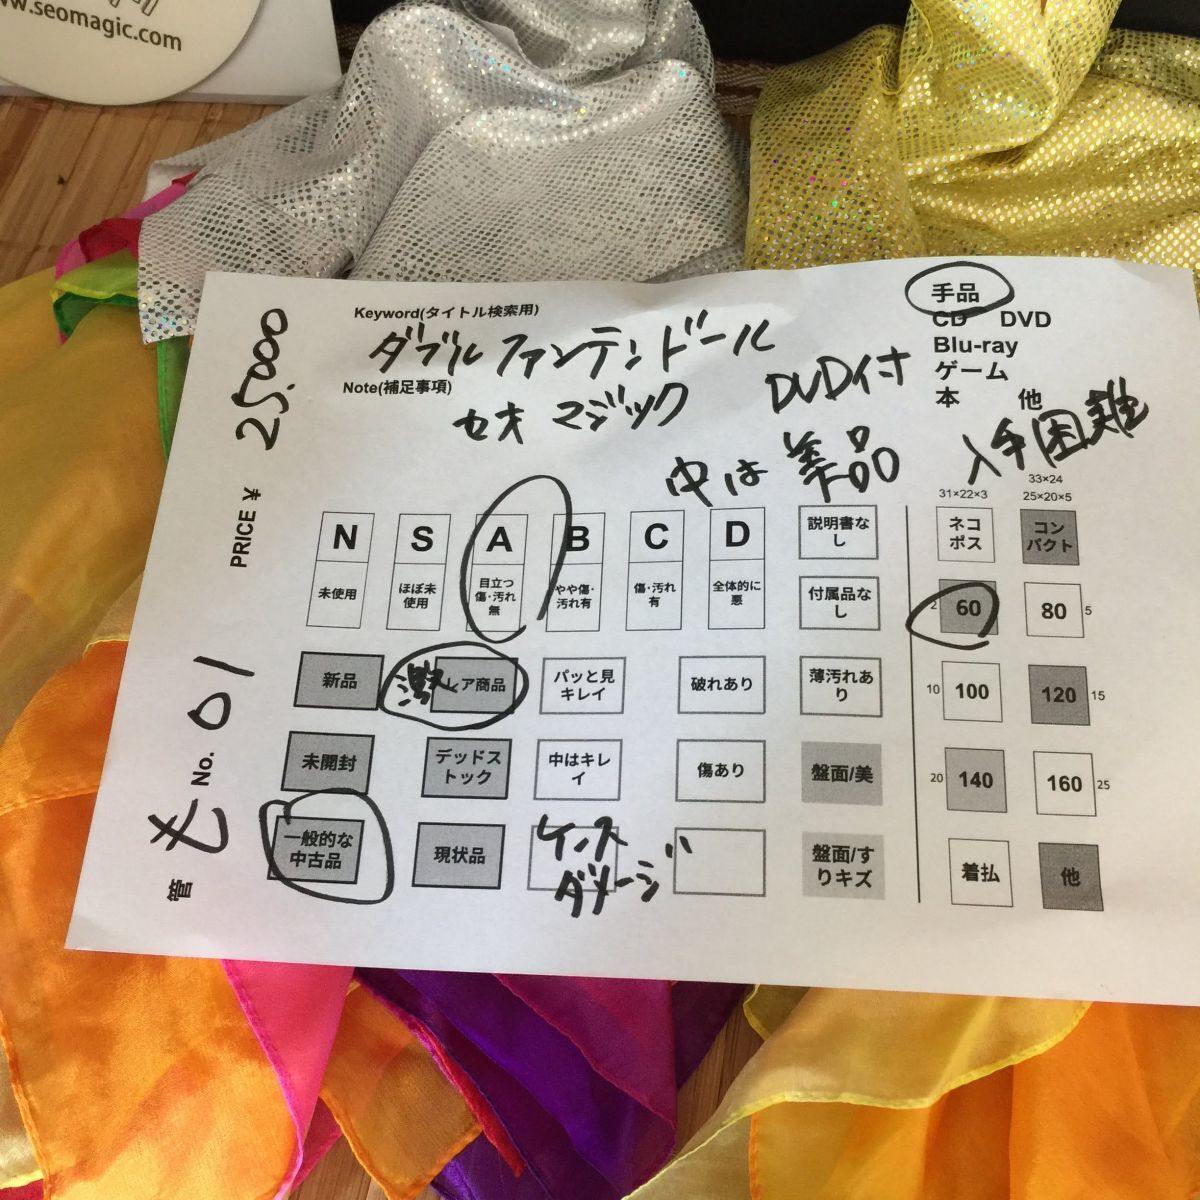 www.seomagic.com
手品
CD DVD
Blu-ray
ゲーム
本 他
Keyword(タイトル検索用)
ダブルファンテンドール
Note(補足事項)
セオ マジック
DVD付
中は 美品
入手困難
PRICE ¥ 25,000
管 も No. 01
N
未使用
S
ほぼ未
使用
A
目立つ
傷・汚れ
無
B
やや傷・
汚れ有
C
傷・汚れ
有
D
全体的に
悪
説明書な
し
付属品な
し
新品
激レア商品
パッと見
キレイ
破れあり
薄汚れあ
り
未開封
デッドス
トック
中はキレ
イ
傷あり
盤面/美
一般的な
中古品
現状品
ケース
ダメージ
盤面/す
りキズ
31×22×3
33×24
25×20×5
ネコ
ポス
コン
パクト
2 60 80 5
10 100 120 15
20 140 160 25
着払 他